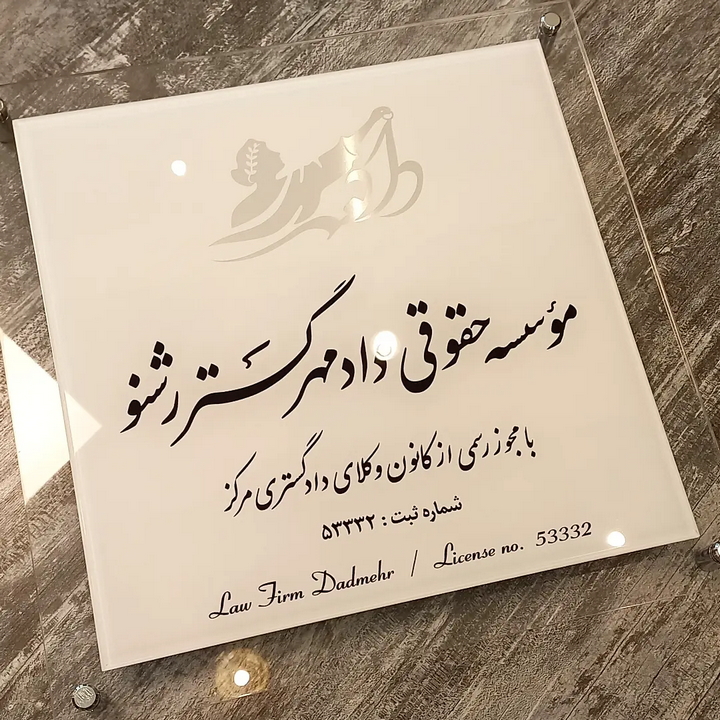 دادمهر
مؤسسه حقوقی دادمهر گستر رشنو
با مجوز رسمی از کانون وکلای دادگستری مرکز
شماره ثبت : ۵۳۳۳۲
Law Firm Dadmehr / License no. 53332